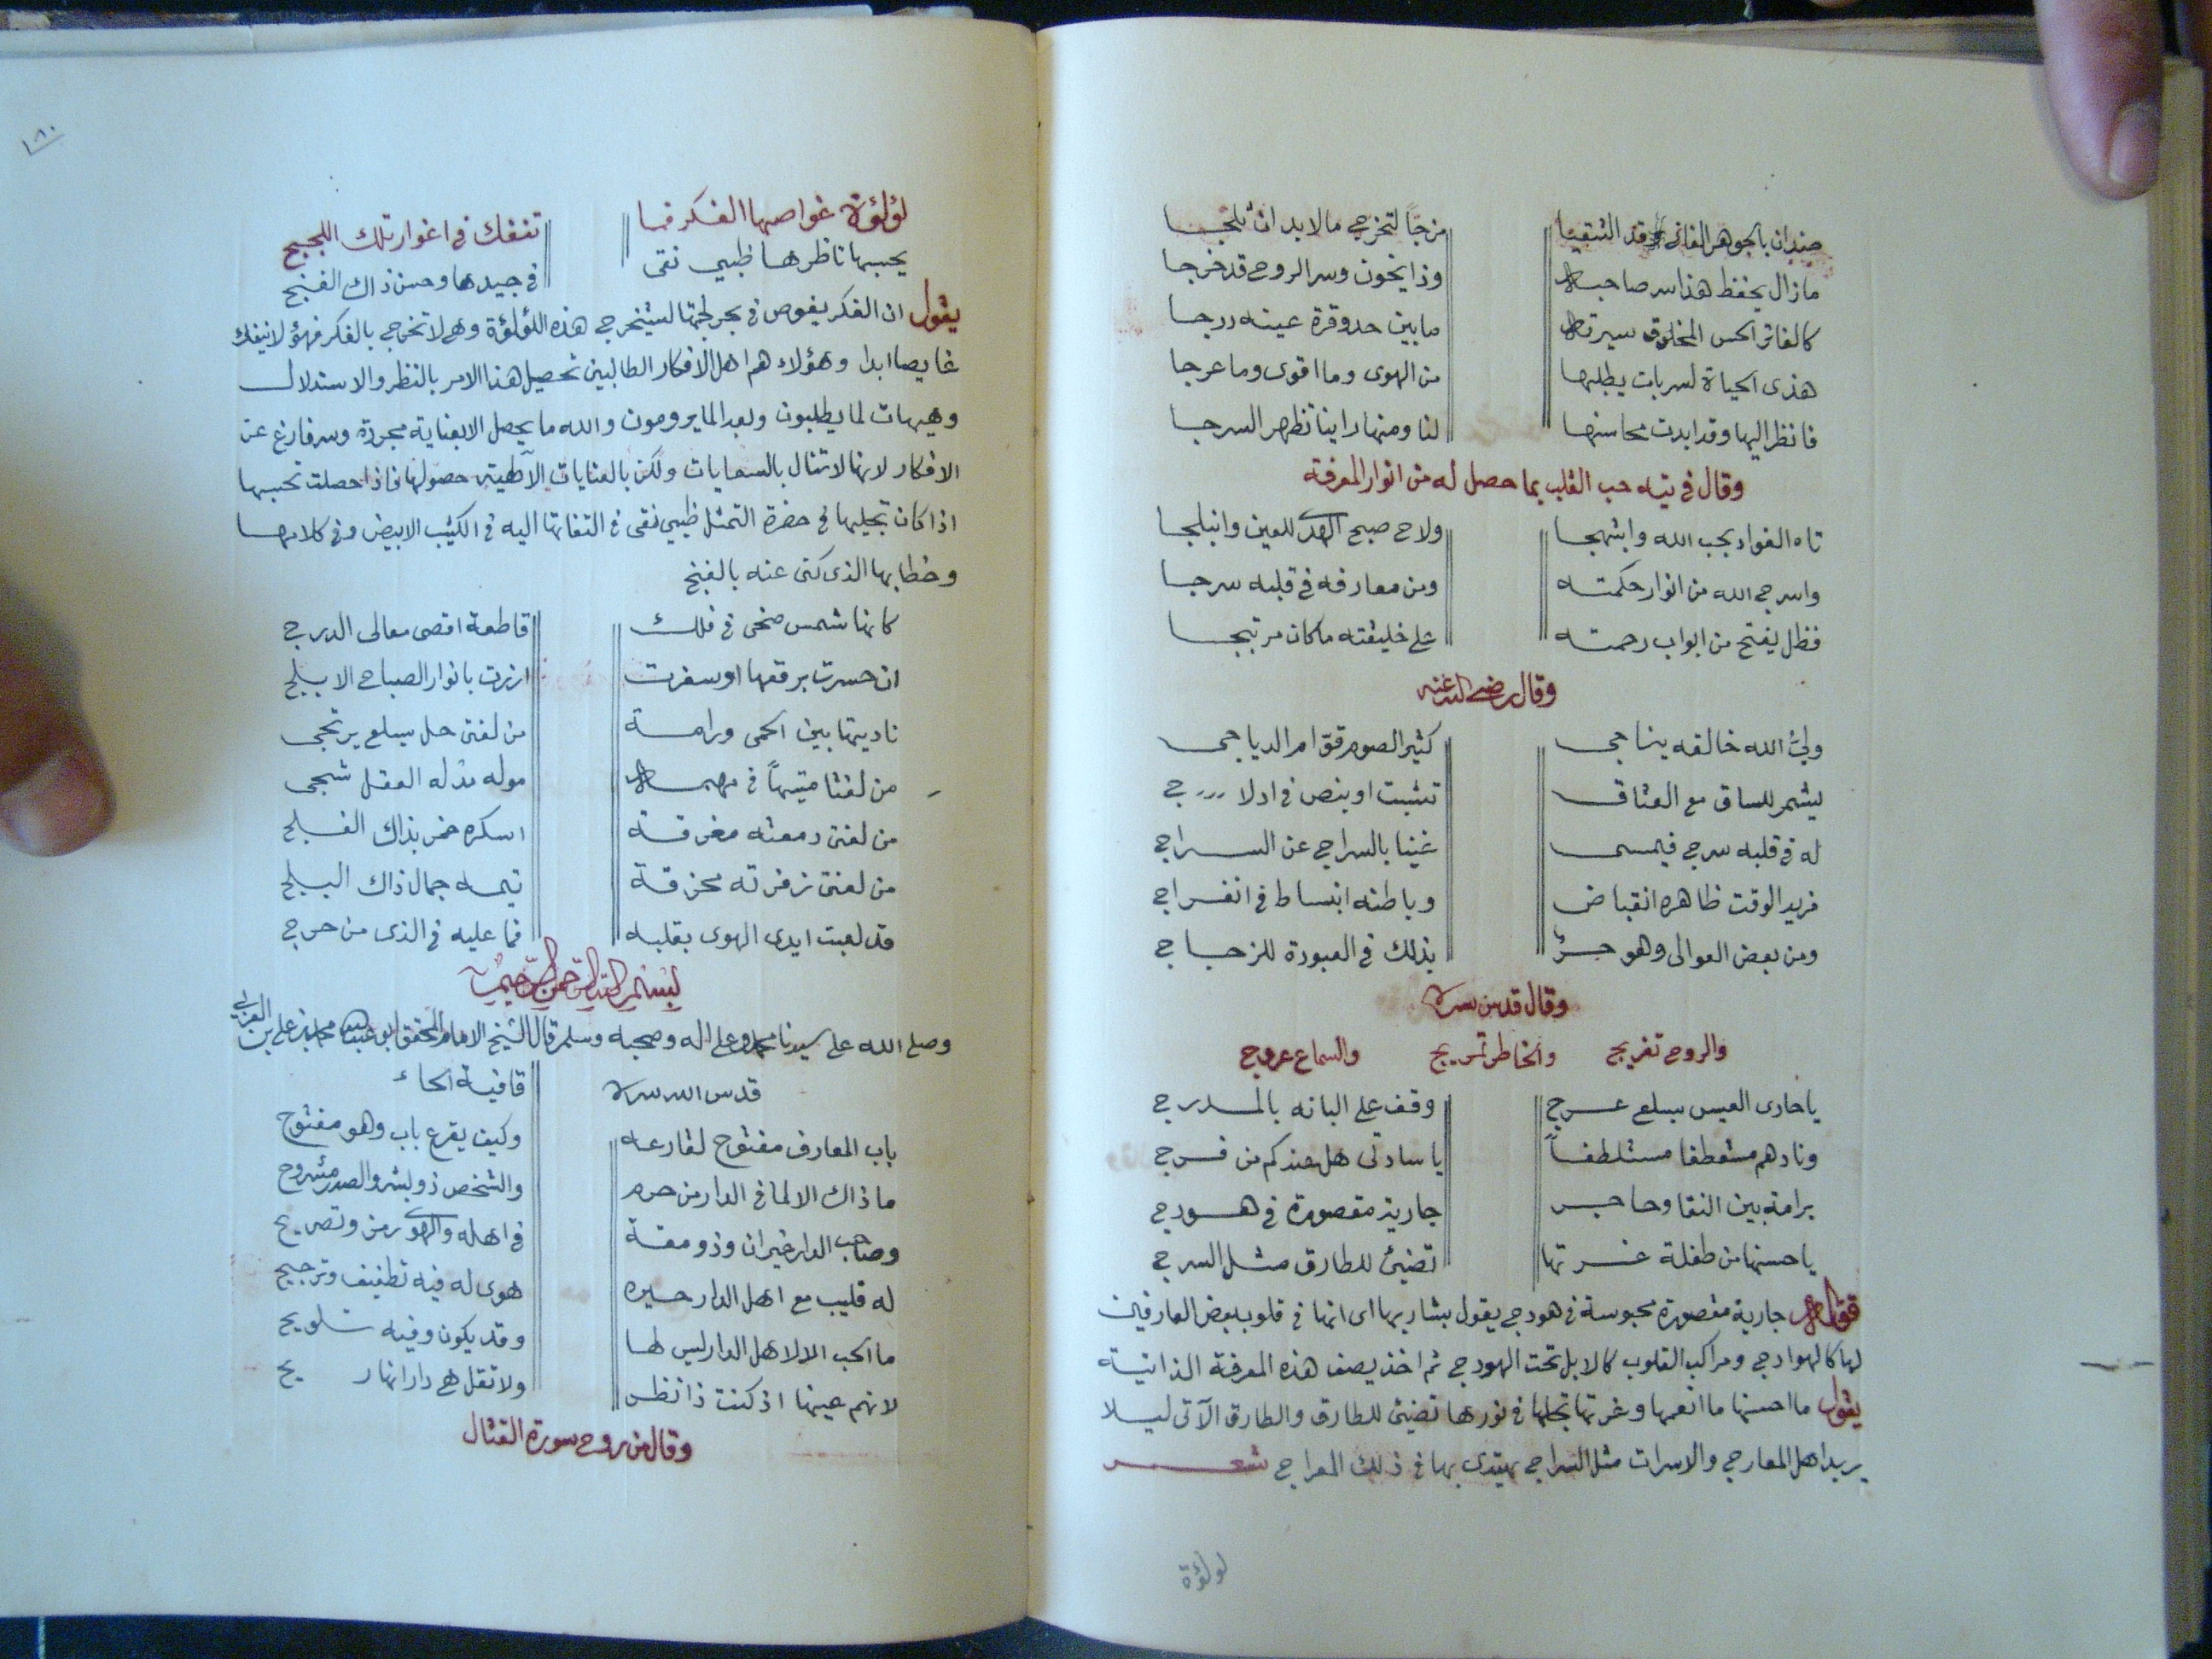 ضدان بالجوهر الفانى قد التقيا مزجاً لتخرج مالابد ان يلجا
مازال يحفظ هذا سر صاحبه وذا يخون وسر الروح قد خرجا
كالفاتر الحس المخلوق سيرته مابين حد وقرة عينه درجا
هذى الحياة لسربات يطلبها من الهوى وما اقوى وما عرجا
فانظر اليها وقد ابدت محاسنها لنا ومنها راينا تظهر السرجا
وقال فى تيه حب القلب بما حصل له من انوار المعرفة
تاه الفواد بحب الله وابتهجا ولاح صبح الهدى للعين وانبلجا
واسرج الله من انوار حكمته ومن معارفه فى قلبه سرجا
فظل يفتح من ابواب رحمته على خليقته ماكان مرتتجا
وقال رضى الله عنه
ولىُّ الله خالقه يناجى كثير الصوم قوام الدياجى
يشمر للساق مع العتاق تثبت اوينص فى ادلاج
له فى قلبه سرج فيمسى غنيا بالسراج عن السراج
فريد الوقت ظاهره انقباض وباطنه انبساط فى انفراج
ومن بعض العوالى وهو حرٌ بذلك فى العبودة للزجاج
وقال قدس سره
والروح تفريج والخاطر تمريج والسماع عروج
ياحادى العيس بسلع عرج وقف على البانه بالمدرج
ونادهم مستعطفا مستلطفاً ياسادتى هل عندكم من فرج
برامة بين النقا وحاجر جارية مقصورة فى هودج
ياحسنها من طفلة غرتها تضئ للطارق مثل السرج
فقوله جارية مقصورة محبوسة فى هودج يقول يشار بها اى انها فى قلوب بعض العارفين
لها كالهوادج ومراكب القلوب كالابل تحت الهودج ثم اخذ يصف هذه المعرفة الذاتية
يقول ما احسنها ما انعمها وغرتها تجليها فى نورها تضئ للطارق والطارق الآتى ليلا
يريد اهل المعارج والاسرات مثل السراج يهتدى بها فى ذلك المعراج شعر
لولؤة
١٨٠
لؤلؤة غواصها الفكر فما تنفك فى اغوار تلك اللجج
يحسبها ناظرها ظبى نقى فى جيدها وحسن ذاك الغنج
يقول ان الفكر يغوص فى بحر لجتها ليستخرج هذه اللؤلؤة وهى لا تخرج بالفكر فهو لا ينفك
غايصا ابدا وهؤلاء هم اهل الافكار الطالبين تحصيل هذا الامر بالنظر والاستدلال
وهيهات لما يطلبون وبعدا لما يرومون والله ما يحصل الابعناية مجردة وسر فارغ عن
الافكار لانها لا تنال بالسعايات ولكن بالعنايات الآلهية حصولها فاذا حصلت تحسبها
اذا كان تجليها فى حضرة التمثل ظبى نقى فى التفاتها اليه فى الكثيب الابيض وفى كلامها
وخطابها الذى كنى عنه بالغنج
كانها شمس ضحى فى فلك قاطعة اقصى معالى الدرج
ان حسرت برقعها او سفرت ازرت بانوار الصباح الابلج
ناديتها بين الحمى ورامة من لفتى حل بسلع يرتجى
من لفتا متيهاً فى مهمه موله مدله العقل شجى
من لفتى دمعته مغرقة اسكره خمر بذاك الفلج
من لفتى زفرته محرقة تيمه جمال ذاك البلج
قد لعبت ايدى الهوى بقلبه فما عليه فى الذى من حرج
بسم الله الرحمن الرحيم
وصلى الله على سيدنا محمد وعلى اله وصحبه وسلم قال الشيخ الامام المحقق ابو عبدالله محمد بن على بن العربى
قدس الله سره قافية الحاء
باب المعارف مفتوح لقارعه وكيف يقرع باب وهو مفتوح
ماذاك الالما فى الدار من حرم والشخص ذو بشر والصدر مشروح
وصاحب الدار غيران وذو مقة فى اهله والهوى رمز وتصريح
له قليب مع اهل الدار حيره هوى له فيه تطفيف وترجيح
ما الحب الا لاهل الدار ليس لها وقد يكون وفيه تلويح
لانهم عينها اذ كنت ذا نظر ولا تقل هى دار انها ريح
وقال من روح سورة القتال